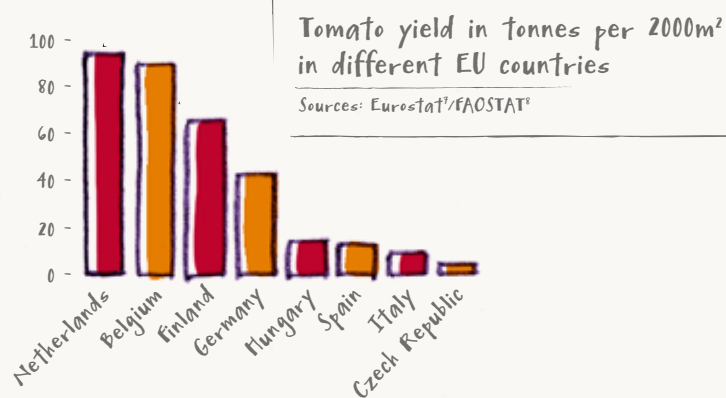 Tomato yield in tonnes per 2000m²
in different EU countries
Sources: Eurostat⁷/FAOSTAT⁸
100
80
60
40
20
0
Netherlands
Belgium
Finland
Germany
Hungary
Spain
Italy
Czech Republic